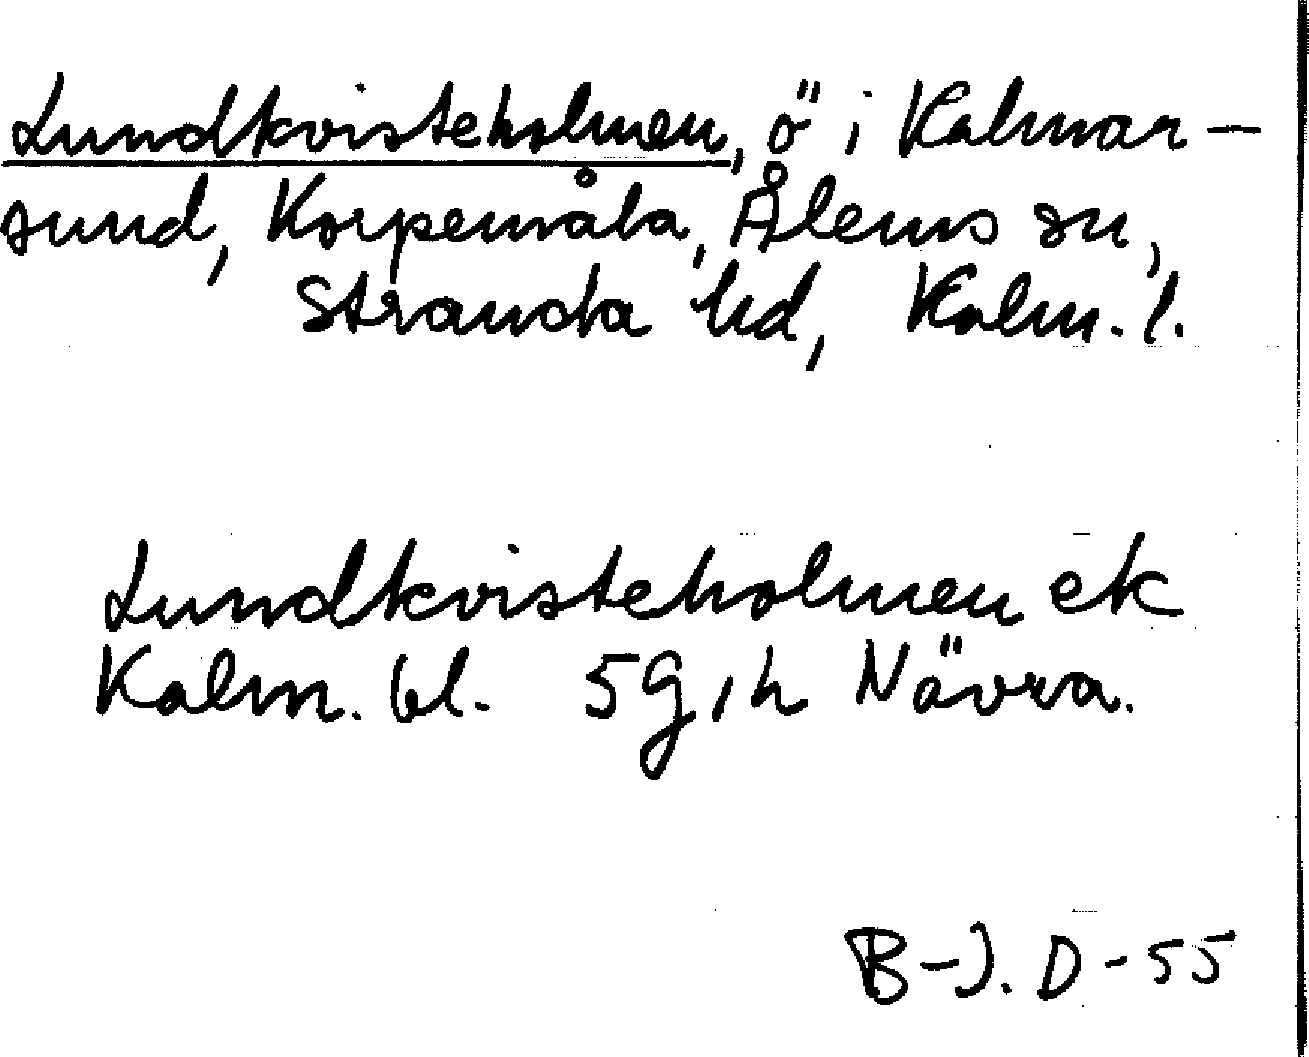 Lundkvisteholmen, ö i Kalmar-
sund, Korpemåla, Ålems sn,
Stranda hd, Kalm. l.
Lundkvisteholmen ek
Kalm. bl. 5 G, h Nävra.
B-J. D-55